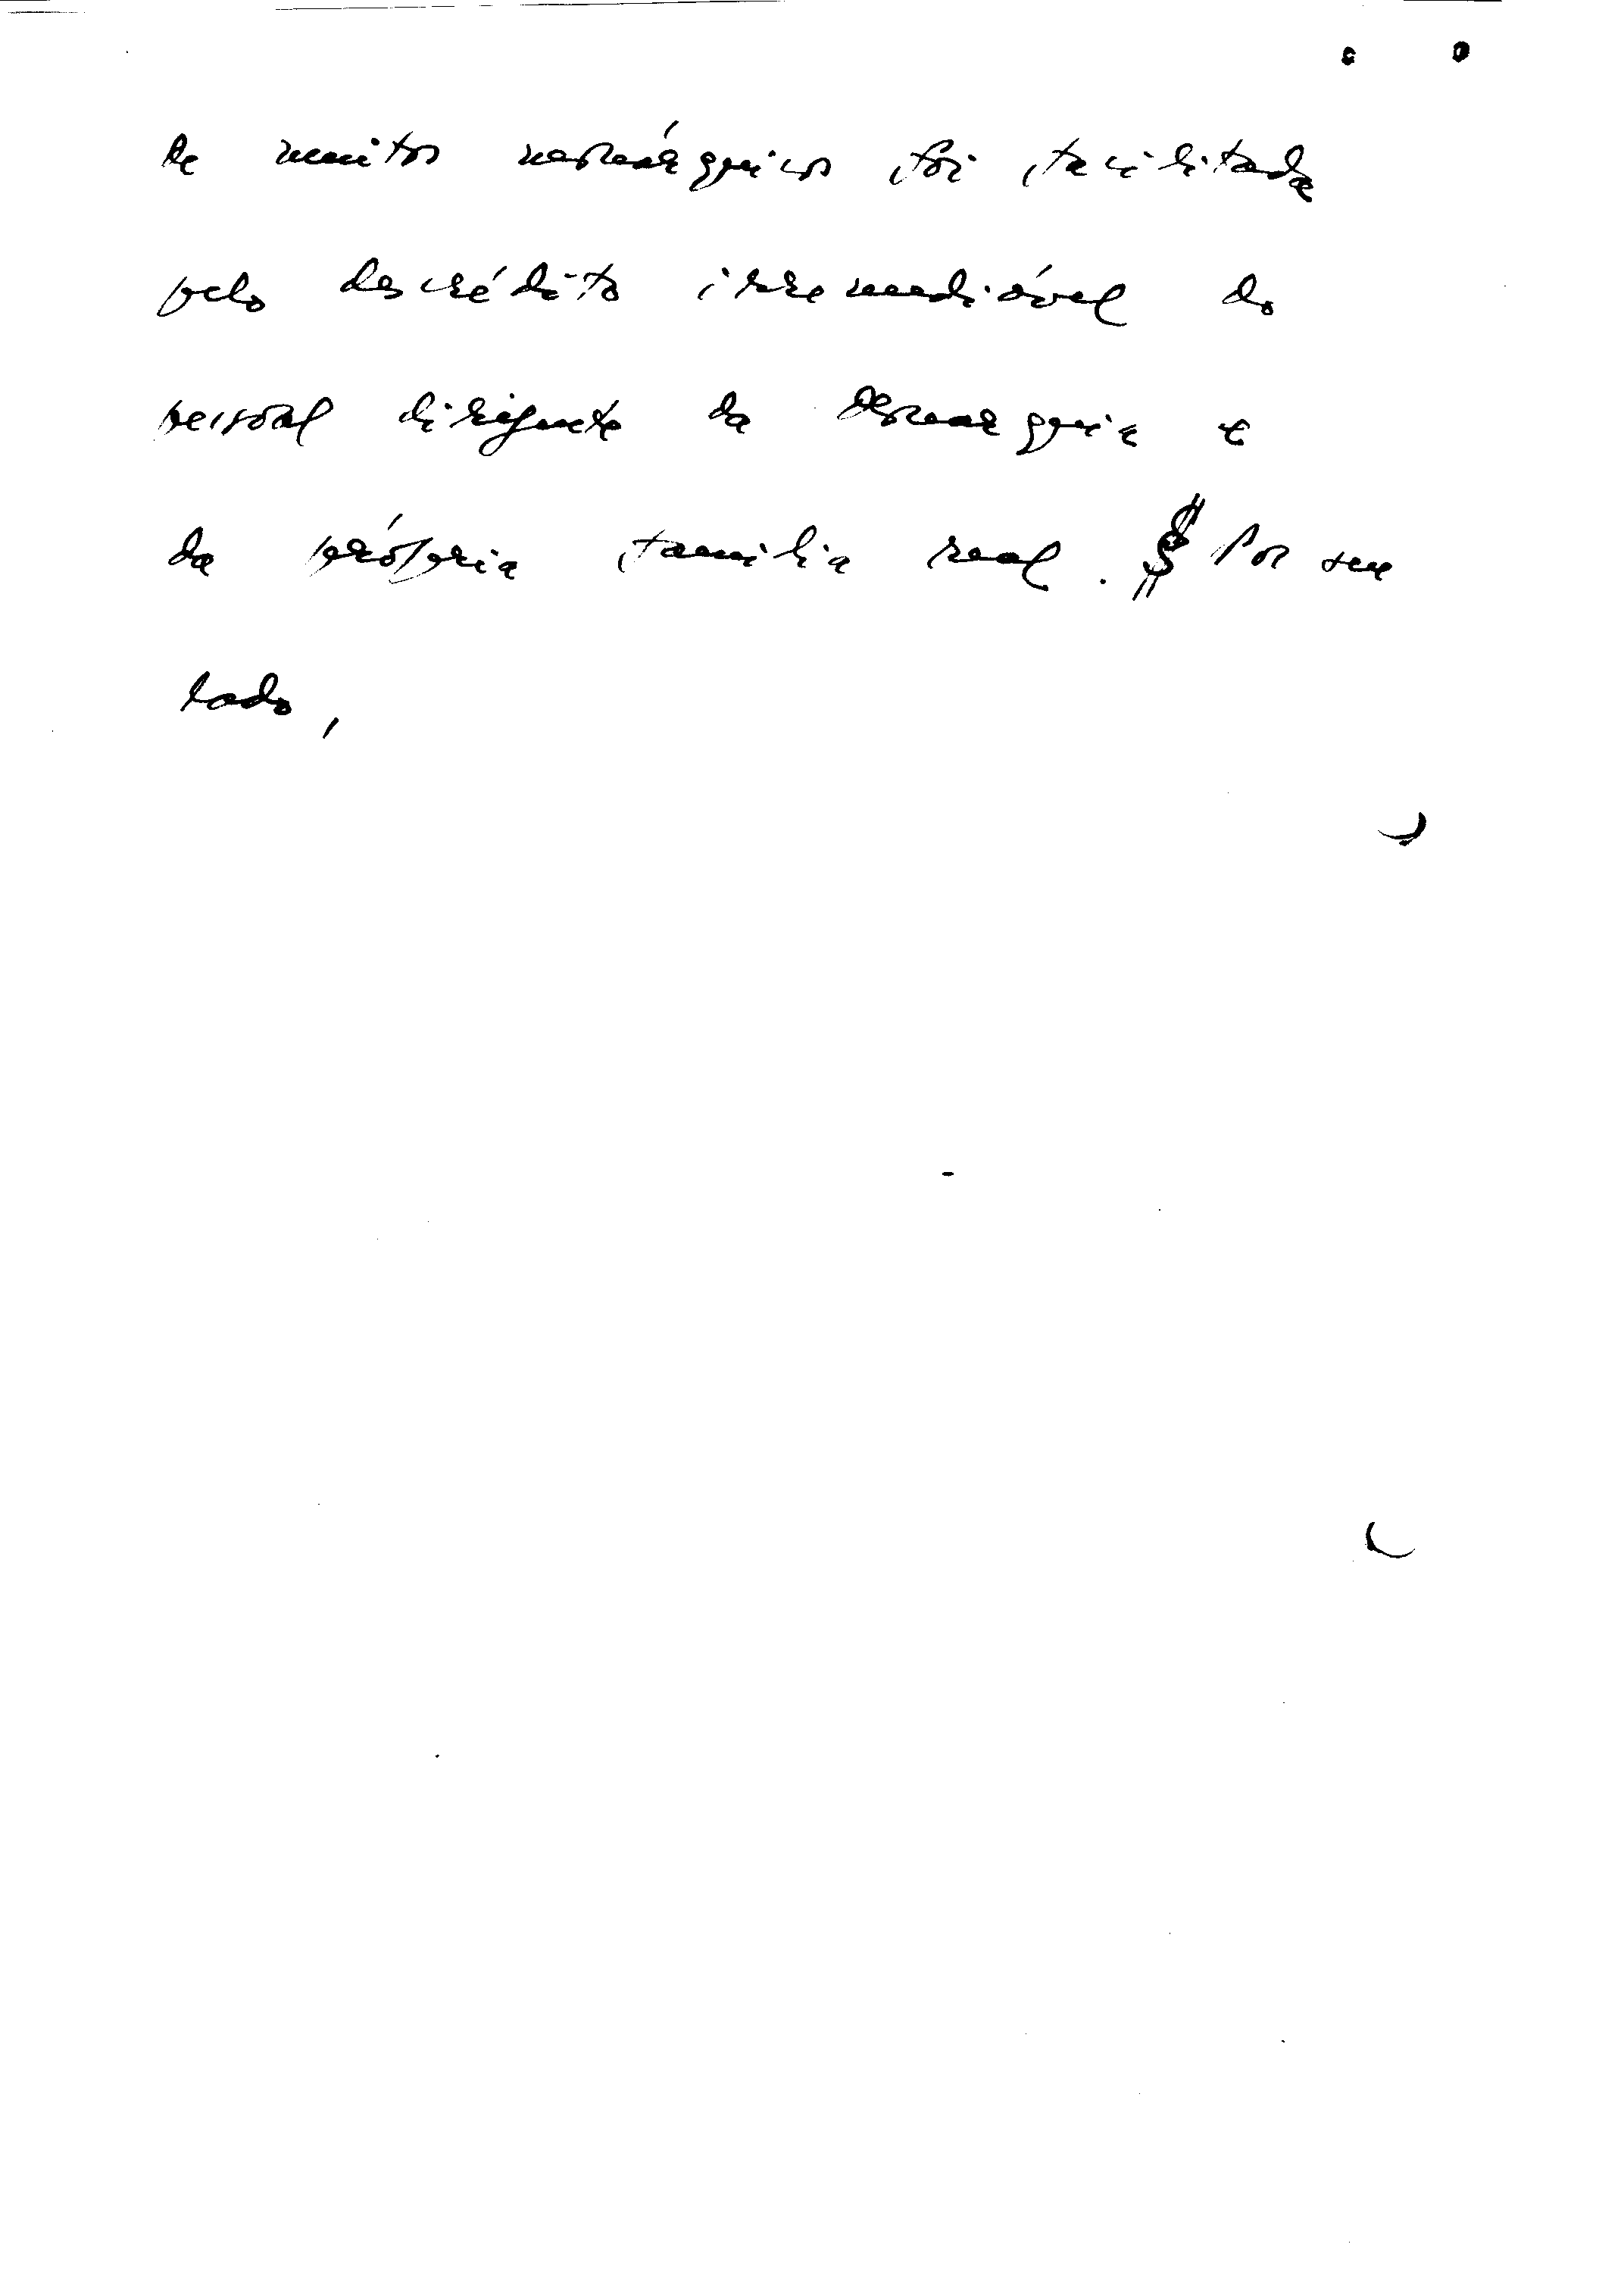 de muitos monárquicos foi facilitada
pelo descrédito irremediável do
pessoal dirigente da Monarquia e
da própria família real. § Por seu
lado,